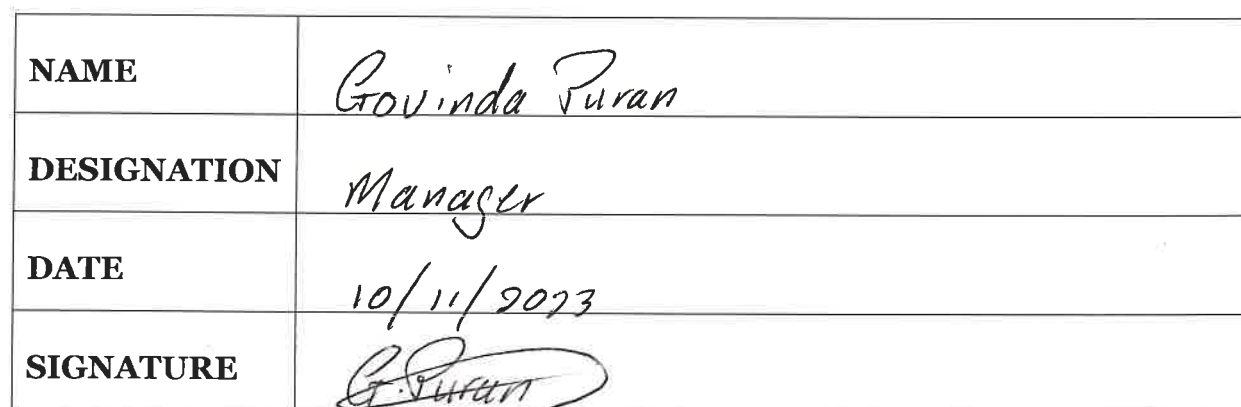 NAME Govinda Puran
DESIGNATION Manager
DATE 10/11/2023
SIGNATURE G.Puran